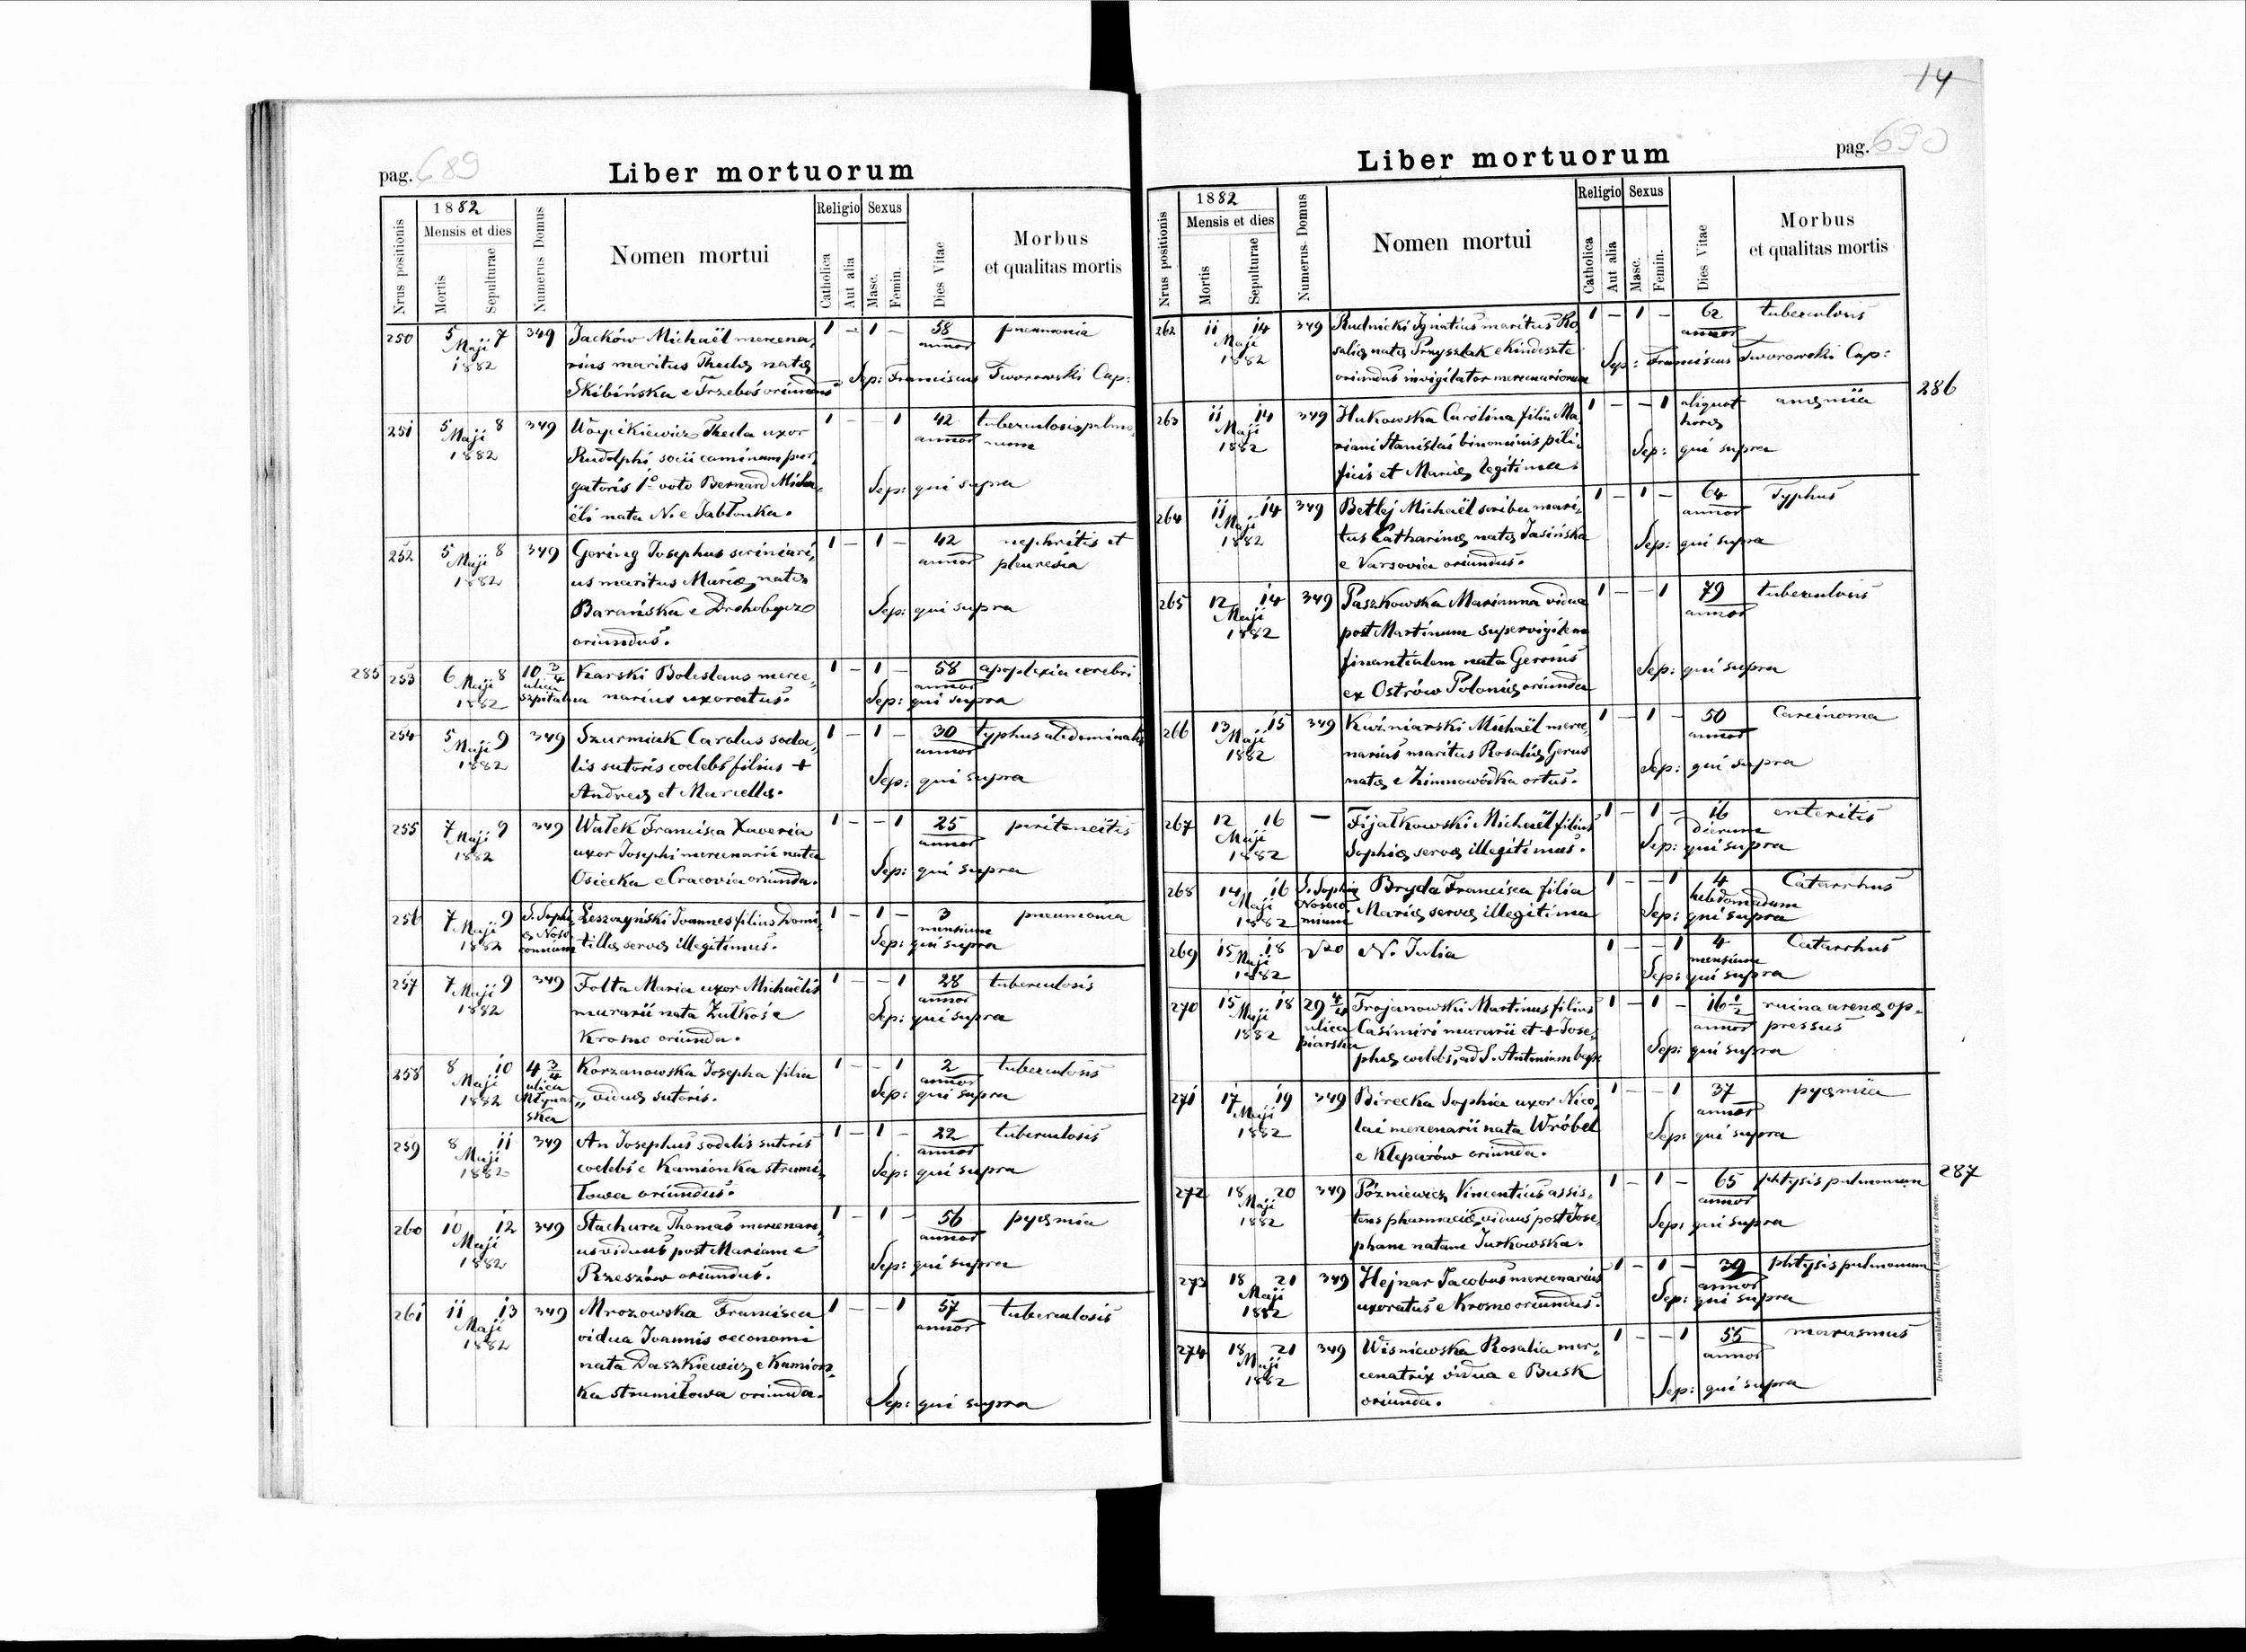 14
pag. 689
Liber mortuorum
Nrus positionis
1882
Mensis et dies
Mortis
Sepulturae
Numerus Domus
Nomen mortui
Religio
Catholica
Aut alia
Sexus
Masc.
Femin.
Dies Vitae
Morbus
et qualitas mortis
250 5 7 349 Jacków Michaël mercena, 1 - 1 - 58 pneumonia
Maji rius maritus Theclę natę annor
1882 Skibińska e Trzeboś oriundus Sep: Franciscus Tworowski Cap:
251 5 8 349 Thecla uxor 1 - - 1 42 tuberculosis pulmo,
Maji Rudolphi socii caminum pur, annor num
1882 gatoris 1o voto Bernard Micha, Sep: qui supra
ëli nata N. e Jabłonka.
252 5 8 349 Gering Josephus scriniari, 1 - 1 - 42 nephritis et
Maji us maritus Marię natę annor pleuresia
1882 Barańska e Drohobycz Sep: qui supra
oriundus.
285 253 6 8 10 3/4 Karski Boleslaus merce, 1 - 1 - 58 apoplexia cerebri
Maji ulica narius uxoratus. annor
1882 szpitalna Sep: qui supra
254 5 9 349 Szurmiak Carolus soda, 1 - 1 - 30 typhus abdominalis
Maji lis sutoris coelebs filius + annor
1882 Andreę et Marcellę. Sep: qui supra
255 7 9 349 Wałek Francisca Xaveria 1 - - 1 25 peritoneitis
Maji uxor Josephi mercenarii nata annor
1882 Osiecka e Cracovia oriunda. Sep: qui supra
256 7 9 S. Sophi Leszczyński Joannes filius Domi, 1 - 1 - 3 pneumonia
Maji ę Noso, tillę servę illegitimus. mensium
1882 comium Sep: qui supra
257 7 9 349 Folta Maria uxor Michaëlis 1 - - 1 28 tuberculosis
Maji murarii nata Zutkoś e annor
1882 Krosno oriunda. Sep: qui supra
258 8 10 4 3/4 Korzanowska Josepha filia 1 - - 1 2 tuberculosis
Maji ulica viduę sutoris. annor
1882 Młynar„ Sep: qui supra
ska
259 8 11 349 An Josephus sodalis sutoris 1 - 1 - 22 tuberculosis
Maji coelebs e Kamionka strumi, annor
1882 łowa oriundus. Sep: qui supra
260 10 12 349 Stachura Thomas mercenari, 1 - 1 - 56 pyęmia
Maji us viduus post Mariam e annor
1882 Rzeszów oriundus. Sep: qui supra
261 11 13 349 Mrozowska Francisca 1 - - 1 57 tuberculosis
Maji vidua Joannis oeconomi annor
1882 nata Daszkiewicz e Kamion,
ka strumiłowa oriunda. Sep: qui supra
Liber mortuorum
pag. 690
Nrus positionis
1882
Mensis et dies
Mortis
Sepulturae
Numerus Domus
Nomen mortui
Religio
Catholica
Aut alia
Sexus
Masc.
Femin.
Dies Vitae
Morbus
et qualitas mortis
262 11 14 349 Rudnicki Ignatius maritus Ro, 1 - 1 - 62 tuberculosis
Maji salię natę Przyszlak e annor
1882 oriundus invigilator mercenariorum Sep: Franciscus Tworowski Cap:
286
263 11 14 349 Hukowska Carolina filia Ma, 1 - - 1 aliquot anęmia
Maji riani Stanislai binominis pili, horę
1882 ficis et Marię legitima. Sep: qui supra
264 11 14 349 Betlej Michaël scriba mari, 1 - 1 - 64 Typhus
Maji tus Catharinę natę Jasińska annor
1882 e Varsovia oriundus. Sep: qui supra
265 12 14 349 Paszkowska Marianna vidua 1 - - 1 79 tuberculosis
Maji post Martinum supervigilem annor
1882 finantialem nata
ex Ostrów Polonię oriunda Sep: qui supra
266 13 15 349 Kuźniarski Michaël merce, 1 - 1 - 50 Carcinoma
Maji narius maritus Rosalię Gerus annor
1882 natę e Zimnowódka ortus. Sep: qui supra
267 12 16 — Fijałkowski Michaël filius 1 - 1 - 16 enteritis
Maji Sophię servę illegitimus. dierum
1882 Sep: qui supra
268 14 16 S. Sophię Bryda Francisca filia 1 - - 1 4 Catarrhus
Maji Nosoco, Marię servę illegitima hebdomadum
1882 mium Sep: qui supra
269 15 18 N. Julia 1 - - 1 4 Catarrhus
Maji mensium
1882 Sep: qui supra
270 15 18 29 4/4 Trojanowski Martinus filius 1 - 1 - 16 1/2 ruina arenę op,
Maji ulica Casimiri murarii et + Jose, annor pressus
1882 piarska phę coelebs, ad S. Antonium bapt Sep: qui supra
271 17 19 349 Birecka Sophia uxor Nico, 1 - - 1 37 pyęmia
Maji lai mercenarii nata Wróbel annor
1882 e Kleparów oriunda. Sep: qui supra
287
272 18 20 349 Późniewicz Vincentius assis, 1 - 1 - 65 phtysis pulmonum
Maji tens pharmacię, viduus post Jose, annor
1882 pham natam Jurkowska. Sep: qui supra
273 18 21 349 Hejnar Jacobus mercenarius 1 - 1 - 39 phtysis pulmonum
Maji uxoratus e Krosno oriundus. annor
1882 Sep: qui supra
274 18 21 349 Wisniawska Rosalia mer, 1 - - 1 55 marasmus
Maji cenatrix vidua e Busk annor
1882 oriunda. Sep: qui supra
Drukiem i nakładem Drukarni Ludowej we Lwowie.